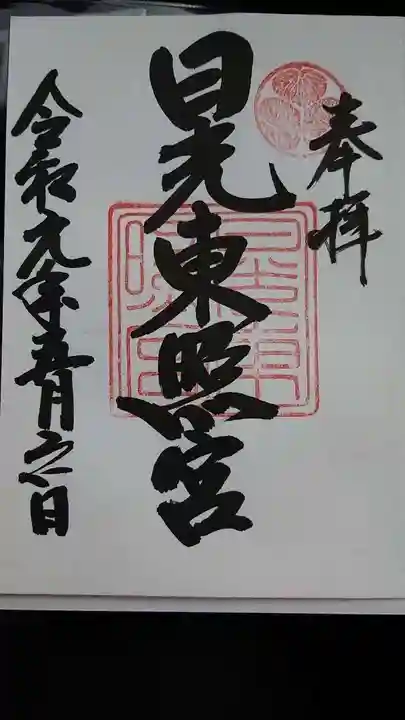 奉拝
日光東照宮
令和元年五月六日